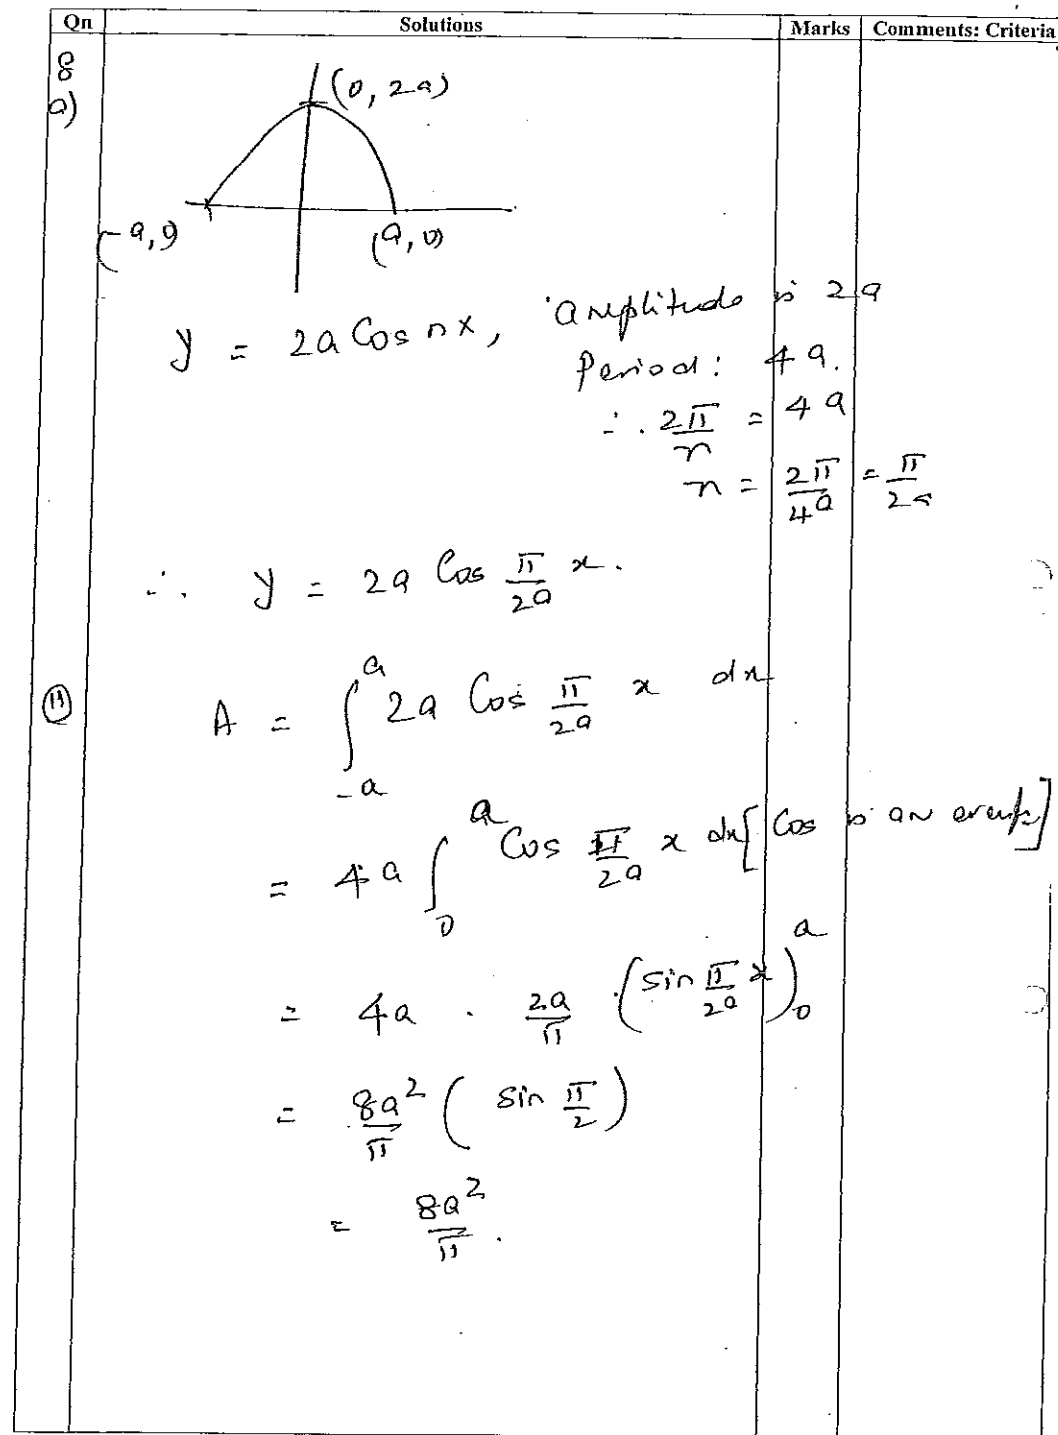 Qn Solutions Marks Comments: Criteria
8
a)
(0, 2a)
(-a, 0) (a, 0)
y = 2a Cos nx, amplitude is 2a
Period: 4a.
∴ 2π/n = 4a
n = 2π/4a = π/2a
∴ y = 2a Cos π/2a x.
(ii) A = ∫_{-a}^{a} 2a Cos π/2a x dx
= 4a ∫_0^a Cos π/2a x dx [Cos is an even
= 4a . 2a/π . (sin π/2a x)_0^a
= 8a²/π ( sin π/2 )
= 8a²/π .